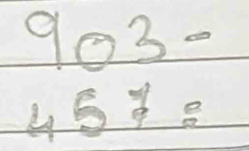 903-
457=